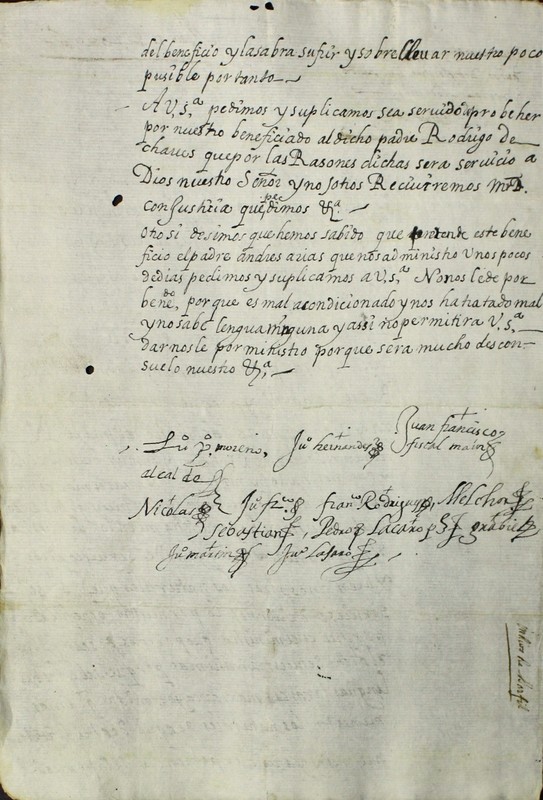 del beneficio y lasabra sufrir y sobre llevar nuestro poco
pusible por tanto —
A V, s,ª pedimos y suplicamos sea servido a probeher
por nuestro beneficiado al dicho padre Rodrigo de
chaves que por las Rasones dichas sera servicio a
Dios nuestro Señor y nosotros Recivirremos mrd.
con Justicia que pedimos &ª. —
Otro si desimos que hemos sabido que pretende este bene
ficio el padre andres arias que nos administro Unos pocos
de dias pedimos y suplicamos a V, s,ª No nos le de por
benefdo, por que es mal acondicionado y nos ha tratado mal
y no sabe lengua ninguna y assi no permitira V. s,ª
darnosle por ministro porque sera mucho descon-
suelo nuestro &ª, —
Juan francisco
fiscal maior
Luº pº moreno, Juº hernandes
alcalde
Nicolas Juº frcº franco Rodriguez, Melchor
Sebastian, Pedro Lacaro Grabiel
Juº martin Juº Lasaro